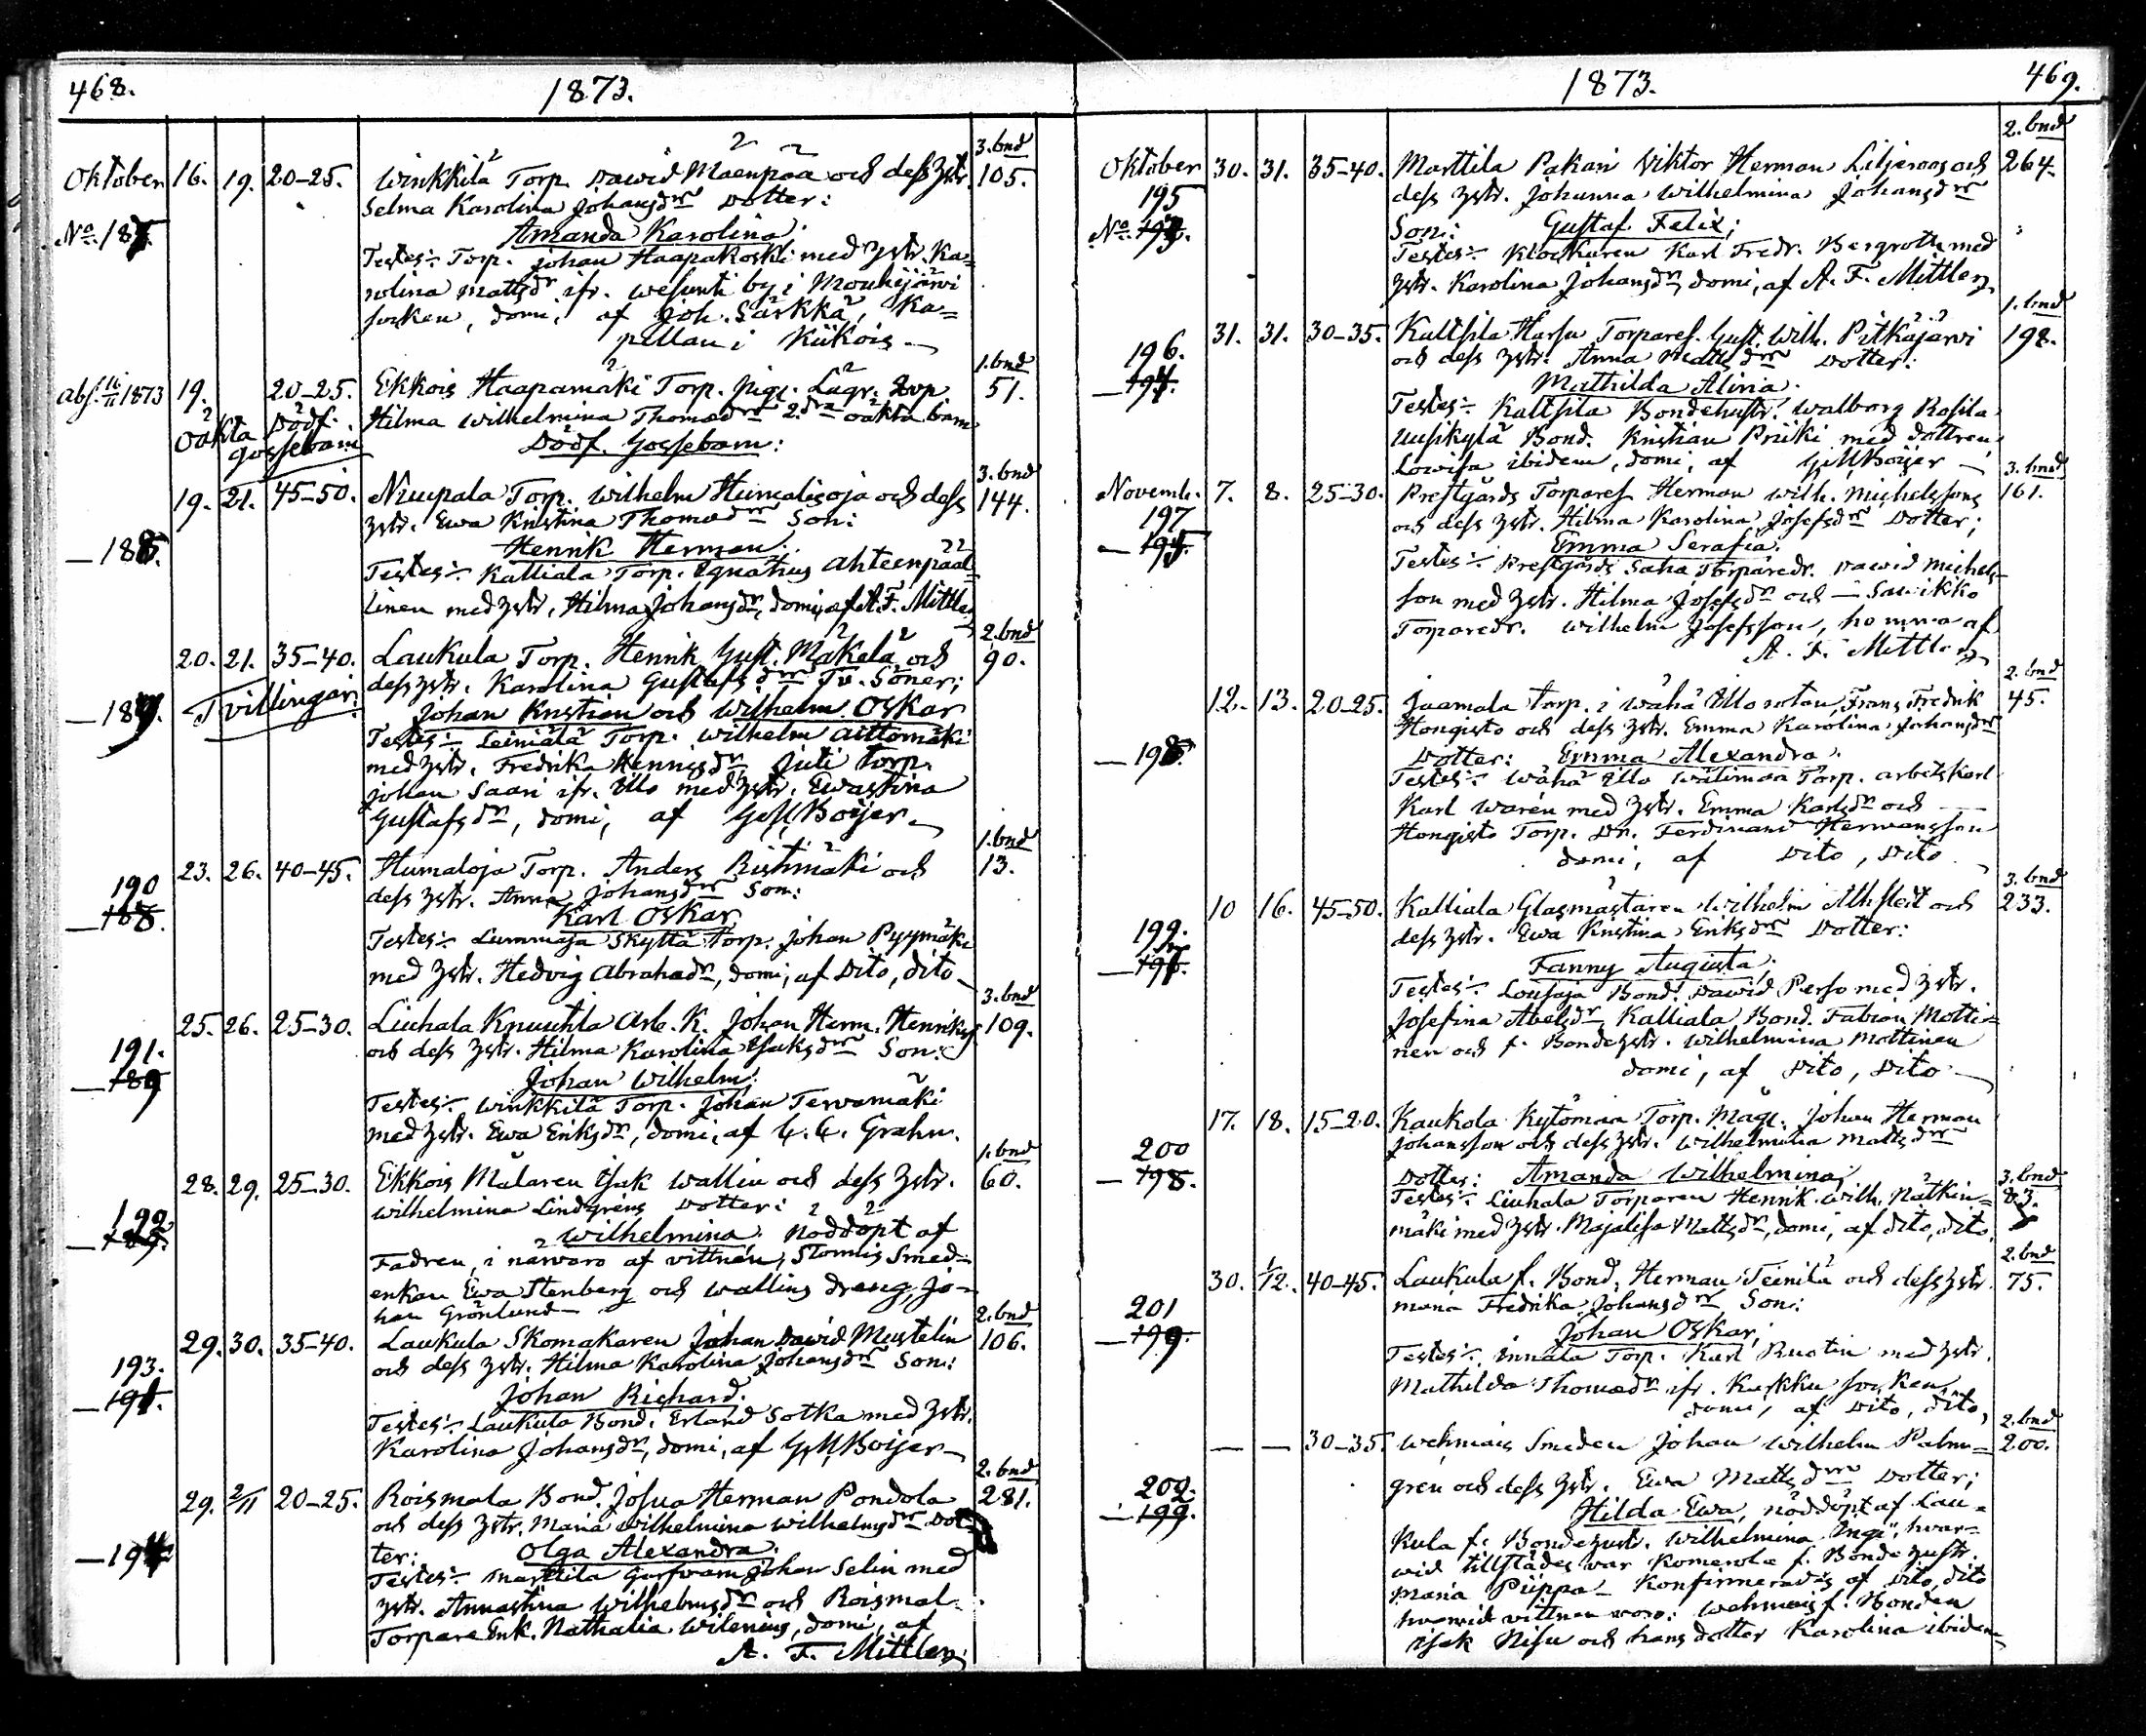 468.
1873.
3. bnd
Oktober 16. 19. 20-25. Winkkilä Torp. David Mäenpää och dess hstr. 105.
Selma Karolina Johansdr Dotter:
No. 187. Amanda Karolina.
Testes: Torp. Johan Haapakoski med hstr. Ka=
rolina Mattsdr ifr. Wesunti by i Mouhijärvi
socken, domi, af Joh. Särkkä, Ka=
pellan i Kiikois
1. bnd
abs. 16/11 1873 19. 20-25. Ekkois Haapamäki Torp. pige. 51.
Oäkta Dödf. gossebarn Hilma Wilhelmina Thomædr 2dra oäkta barn
Dödf. Gossebarn:
3. bnd
19. 21. 45-50. Nuupala Torp. Wilhelm Humalisoja och dess 144.
hstr. Ewa Kristina Thomædr Son:
— 188. Henrik Herman.
Testes: Kalliala Torp. Ignatius Ahteenpääl=
linen med hstr. Hilma Johansdr, domi, af A. F. Mittler
2. bnd
20. 21. 35-40. Laukula Torp. Henrik Gust. Mäkelä och 90.
Tvillingar. dess hstr. Karolina Gustafsdr Tv. Söner;
— 189. Johan Kristian och Wilhelm Oskar
Testes: Leiniälä Torp. Wilhelm Aittomäki
med hstr. Fredrika Henrigsdr Juti Torp.
Johan Saari ifr. Illo med hstr. Ewastina
Gustafsdr, domi, af G. M. Boijer
1. bnd
23. 26. 40-45. Humaloja Torp. Anders Ristimäki och 13.
190 dess hstr. Anna Johansdr Son:
— 188. Karl Oskar
Testes: Lummaja Skyttä Torp. Johan Pyymäki
med hstr. Hedvig Abrahadr, domi, af Dito, dito
3. bnd
25. 26. 25-30. Liuhala Knuuhtla Arb. K. Johan Herm. Henriks 109.
191. och dess hstr. Hilma Karolina Isaksdr Son:
— 189 Johan Wilhelm.
Testes: Winkkilä Torp. Johan Tervamäki
med hstr. Ewa Eriksdr, domi, af C. C. Grahn.
1. bnd
28. 29. 25-30. Ekkois Målaren Isak Wallin och dess hstr. 60.
192 Wilhelmina Lindgrens Dotter:
Wilhelmina, Nöddöpt af
Fadren, i närvaro af vittnen, Stormis Smed=
enkan Ewa Stenberg och Wallins dreng, Jo=
han Grönlund
2. bnd
29. 30. 35-40. Laukula Skomakaren Johan David Mustelin 106.
193. och dess hstr. Hilma Karolina Johansdr Son:
— 191. Johan Richard.
Testes: Laukula Bond. Erland Sotka med hstr.
Karolina Johansdr, domi, af G. M. Boijer
2. bnd
29. 2/11 20-25. Roismala Bond. Josua Herman Pondola 281.
och dess hstr. Maria Wilhelmina Wilhelmsdr Dot
— 194 ter: Olga Alexandra.
Testes: Marttila Garfvarn Johan Selin med
hstr. Annastina Wilhelmsdr och Roismal.
Torpare Enk. Nathalia Wilenius, domi, af
A. F. Mittler
1873.
469.
2. bnd
Oktober 30. 31. 35-40. Marttila Pakari Viktor Herman Liljeroos och 264.
195 dess hstr. Johanna Wilhelmina Johansdr
No. 193. Son: Gustaf Felix;
Testes: Klockaren Karl Fredr. Bergroth med
hstr. Karolina Johansdr, domi, af A. F. Mittler
1. bnd
31. 31. 30-35. Kaltsila Harsu Torparef. Gust. Wilh. Pitkäjärvi 198.
196. och dess hstr. Anna Mattsdr Dotter:
— 194. Mathilda Alina.
Testes: Kaltsila Bondehustr. Walborg Rosila
Uusikylä Bond. Kristian Priiki med dottren
Lovisa ibidem, domi, af G. M. Boijer
3. bnd
Novemb. 7. 8. 25-30. Prestgårds Torparef. Herman Wilh. Michelssons 161.
197 och dess hstr. Hilma Karolina Josefsdr Dotter;
— 195. Emma Serafia.
Testes: Prestgårds Saha Torparedr. David Michels=
son med hstr. Hilma Josefsdr och Sawikko
Torparedr. Wilhelm Josefsson, homma af
A. F. Mittler
2. bnd
12. 13. 20-25. Jaamala torp. i Wähä Illo rotan, Frans Fredrik 45.
Hongisto och dess hstr. Emma Karolina Johansdr
— 198. Dotter: Emma Alexandra.
Testes: Wähä Illo Wälimaa Torp. arbetskarl
Karl Warén med hstr. Emma Karlsdr och
Hongisto Torp. Dr. Ferdinand Hermansson
domi, af Dito, Dito
3. bnd
10 16. 45-50. Kalliala Glasmästaren Wilhelm Ahlstedt och 233.
199. dess hstr. Ewa Kristina Eriksdr Dotter:
Fanny Augusta.
Testes: Lousaja Bond. David Perho med hstr.
Josefina Abelsdr, Kalliala Bond. Fabian Motti=
nen och f. Bondehstr. Wilhelmina Mottinen
domi, af Dito, Dito
17. 18. 15-20. Kaukola Kytömaa Torp. Måge. Johan Herman
Johansson och dess hstr. Wilhelmina Mattsdr
200
— 198. Dotter: Amanda Wilhelmina, 3. bnd
Testes: Liuhala Torparen Henrik Wilh. Nätkin= 83.
mäki med hstr. Majalisa Mattsdr, domi, af dito, dito.
2. bnd
30. 1/12. 40-45. Laukula f. Bond. Herman Teinilä och dess hstr. 75.
201 Maria Fredrika Johansdr Son:
— 199. Johan Oskar;
Testes: Innala Torp. Karl Ruotin med hstr.
Mathilda Thomædr ifr. Karkku socken,
domi, af Dito, dito,
2. bnd
— — 30-35. Wehmais Smeden Johan Wilhelm Palm= 200.
202. gren och dess hstr. Ewa Mattsdr Dotter;
— 199. Hilda Ewa, nöddöpt af Lau=
kula f. Bondehustr. Wilhelmina Ingi, hvar=
vid tillstädes var Komerola f. Bonde hustr.
Maria Piippa — Konfirmerades af Dito, dito
hvarvid vittnen voro: Wehmais f. Bonden
Isak Nisu och hans dotter Karolina ibidem